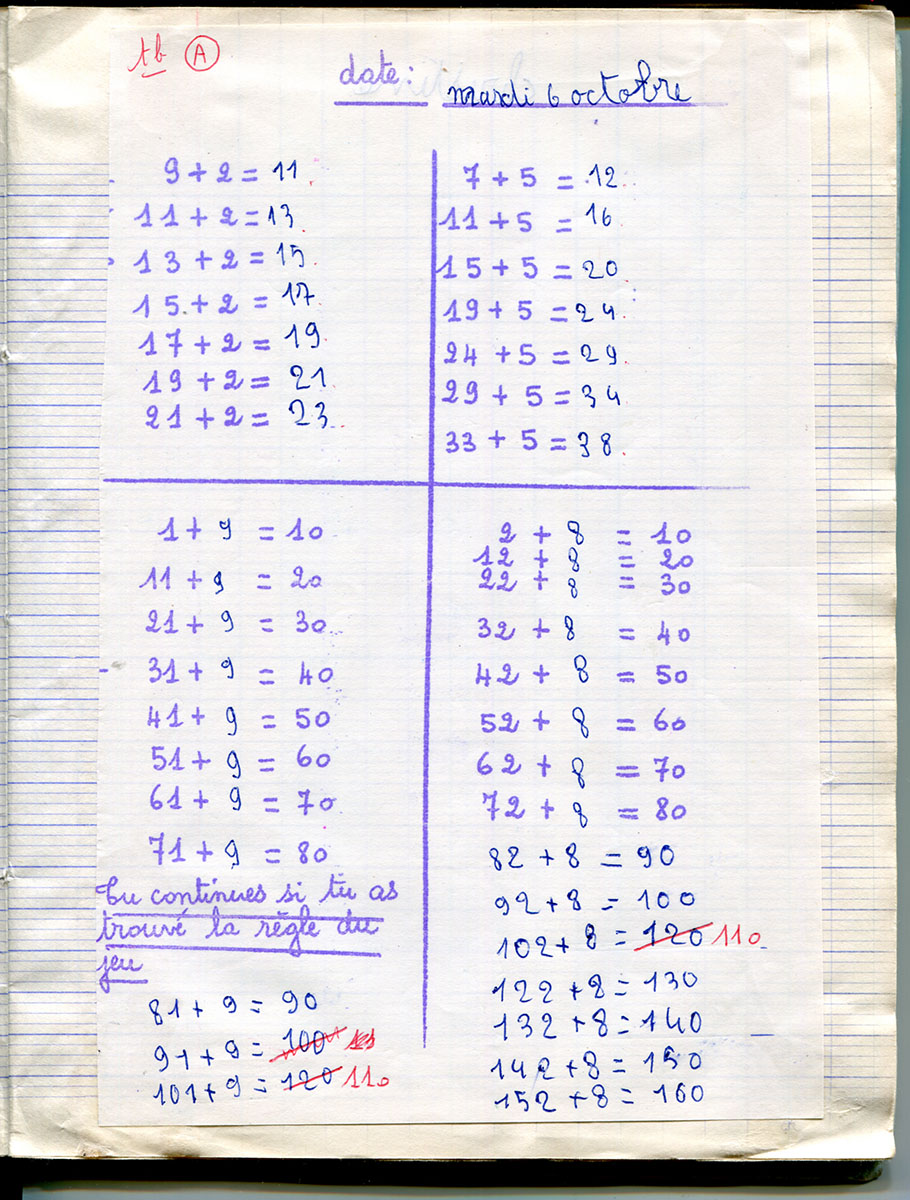 tb A
date: mardi 6 octobre
9 + 2 = 11
11 + 2 = 13
13 + 2 = 15
15 + 2 = 17
17 + 2 = 19
19 + 2 = 21
21 + 2 = 23
7 + 5 = 12
11 + 5 = 16
15 + 5 = 20
19 + 5 = 24
24 + 5 = 29
29 + 5 = 34
33 + 5 = 38
1 + 9 = 10
11 + 9 = 20
21 + 9 = 30
31 + 9 = 40
41 + 9 = 50
51 + 9 = 60
61 + 9 = 70
71 + 9 = 80
Tu continues si tu as
trouvé la règle du
jeu
81 + 9 = 90
91 + 9 = 100
101 + 9 = 120 110
2 + 8 = 10
12 + 8 = 20
22 + 8 = 30
32 + 8 = 40
42 + 8 = 50
52 + 8 = 60
62 + 8 = 70
72 + 8 = 80
82 + 8 = 90
92 + 8 = 100
102 + 8 = 120 110
122 + 8 = 130
132 + 8 = 140
142 + 8 = 150
152 + 8 = 160